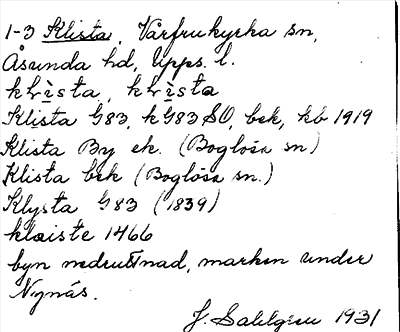 1-3 Klista, Vårfrukyrka sn,
Åsunda hd, Upps. l.
klìsta, klìsta
Klista G83, k G83 SO, bek, kb 1919
Klista By ek. (Boglösa sn)
Klista bek (Boglösa sn.)
Klysta G83 (1839)
klæiste 1466
byn nedruttnad, marken under
Nynäs.
J. Sahlgren 1931